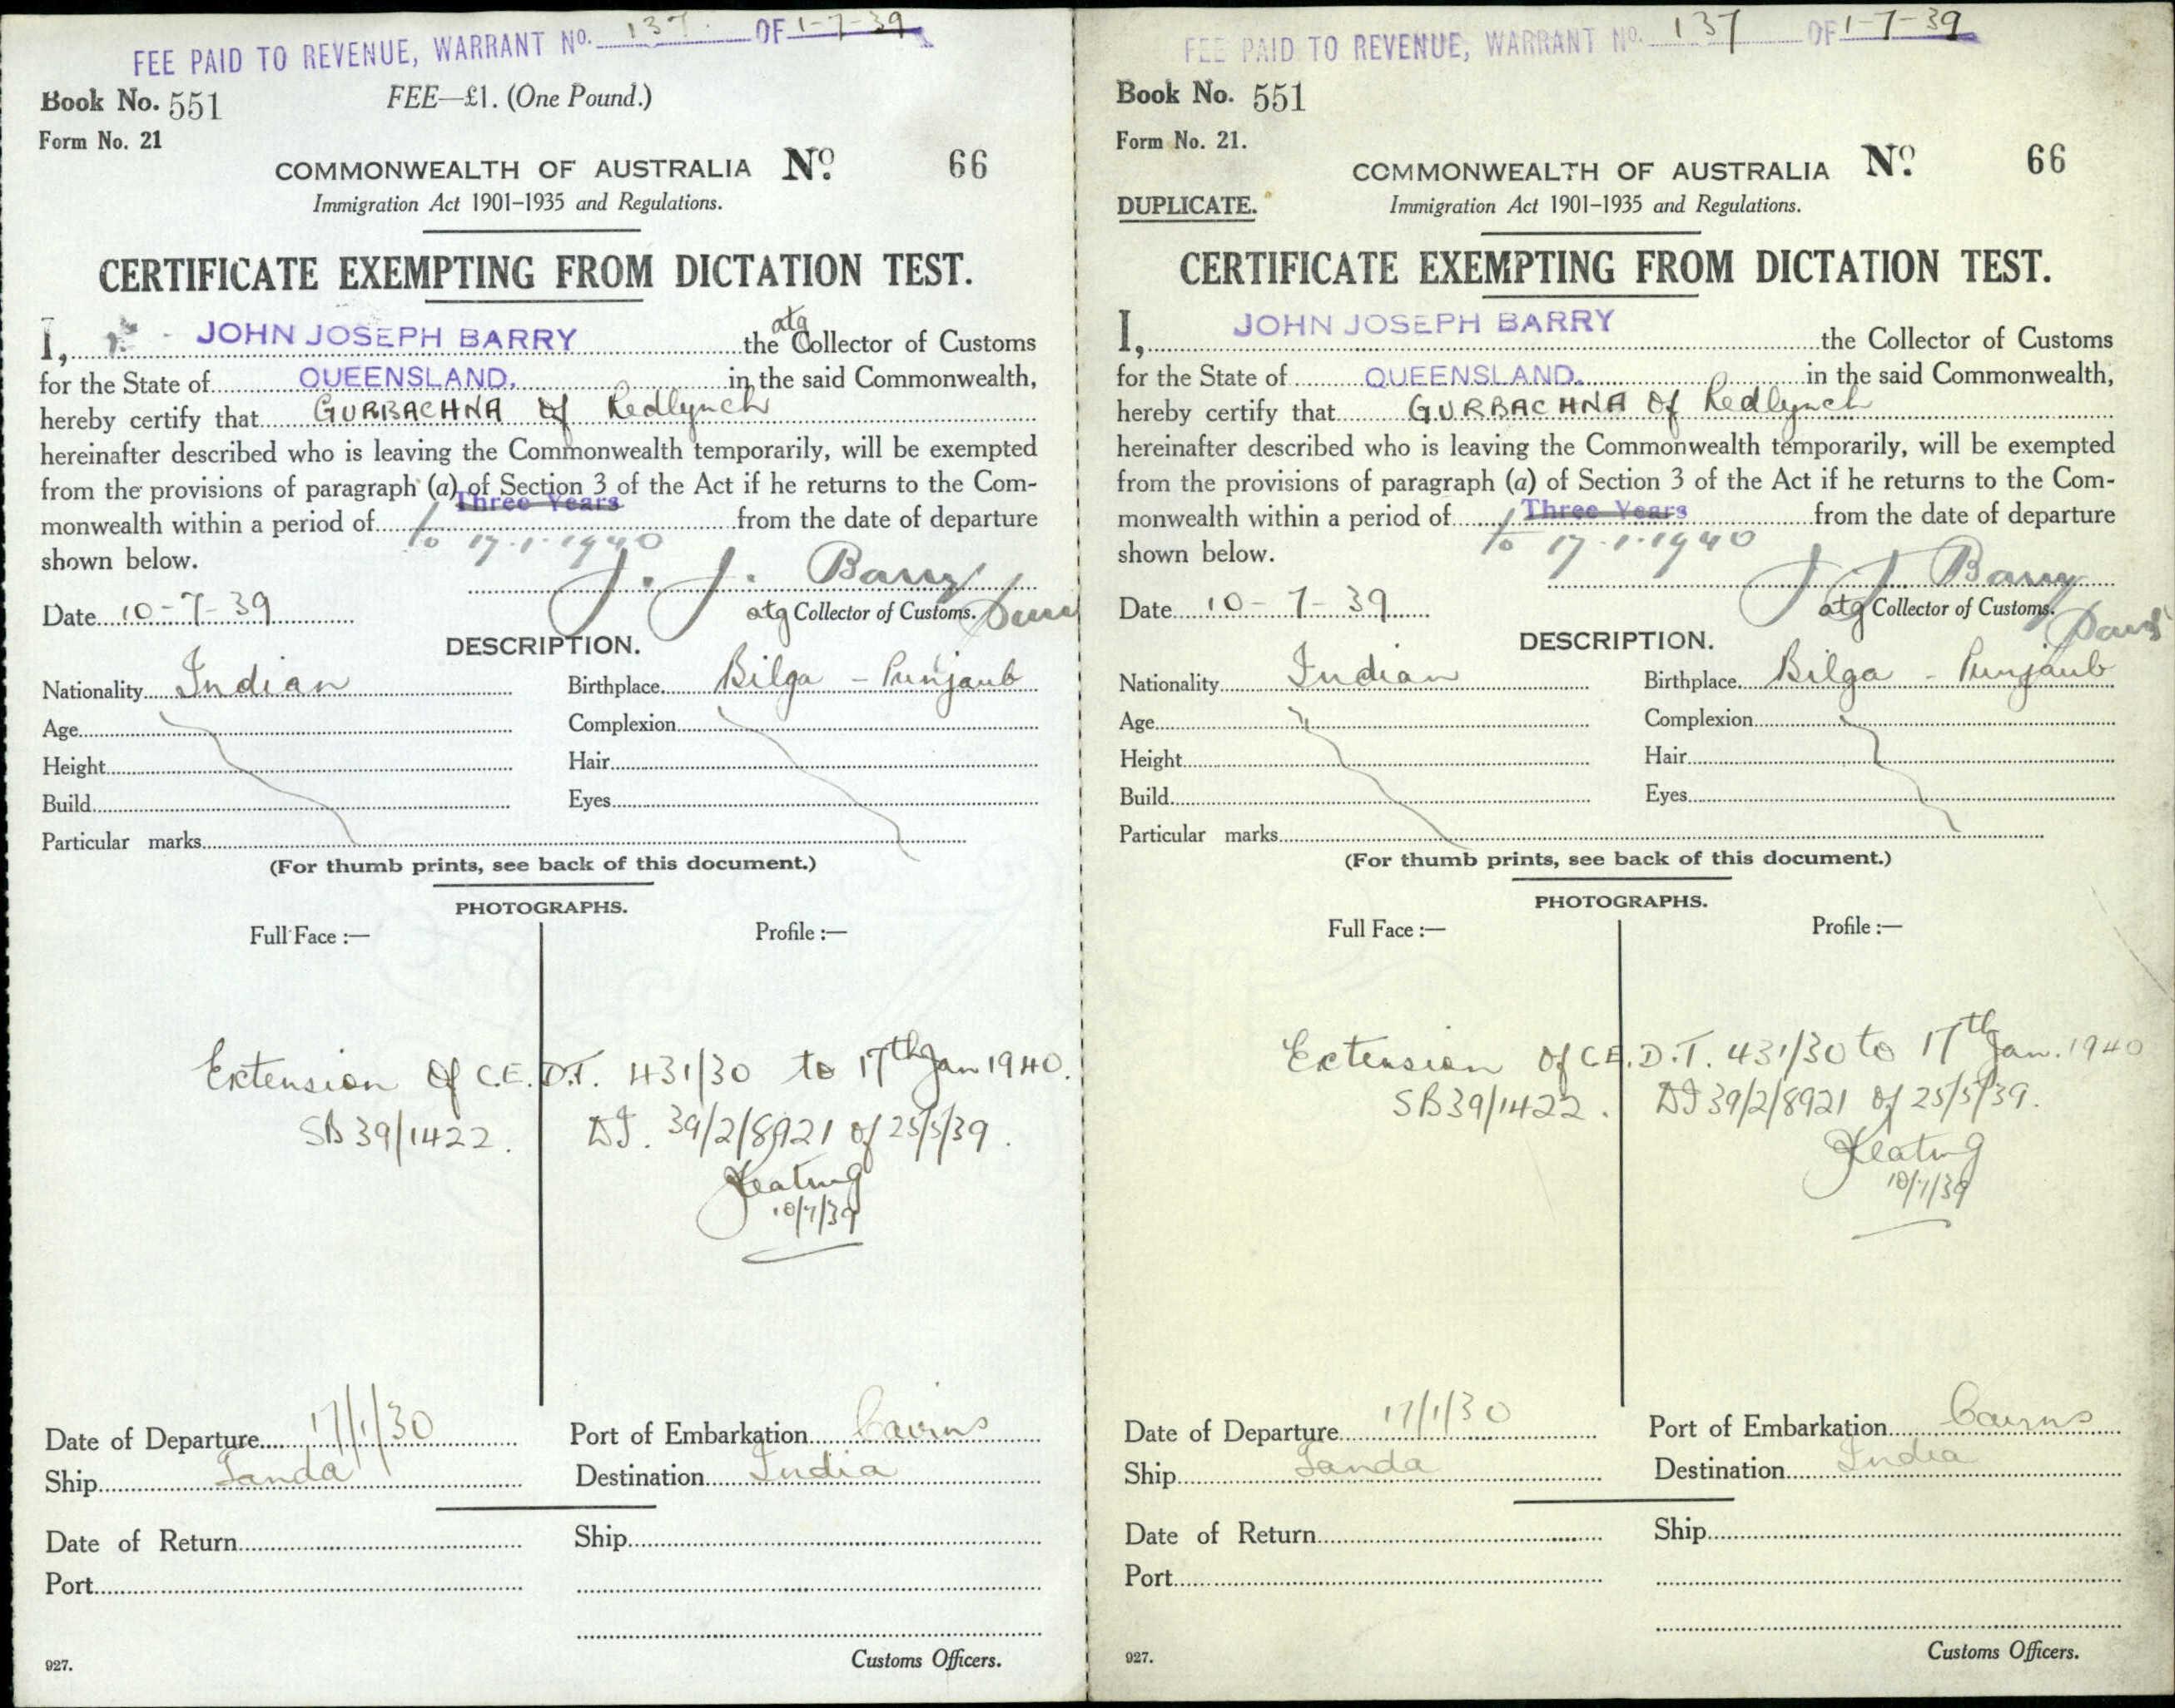 FEE PAID TO REVENUE, WARRANT No. 137. OF 1-7-39
Book No. 551 FEE—£1. (One Pound.)
Form No. 21
COMMONWEALTH OF AUSTRALIA No. 66
Immigration Act 1901–1935 and Regulations.
CERTIFICATE EXEMPTING FROM DICTATION TEST.
I, JOHN JOSEPH BARRY the atg Collector of Customs
for the State of QUEENSLAND. in the said Commonwealth,
hereby certify that GURBACHNA of Redlynch
hereinafter described who is leaving the Commonwealth temporarily, will be exempted
from the provisions of paragraph (a) of Section 3 of the Act if he returns to the Com-
monwealth within a period of Three Years from the date of departure
to 17.1.1940
shown below.
J. J. Barry
Date 10-7-39 atg Collector of Customs.
DESCRIPTION.
Nationality Indian Birthplace Bilga - Punjaub
Age Complexion
Height Hair
Build Eyes
Particular marks
(For thumb prints, see back of this document.)
PHOTOGRAPHS.
Full Face :— Profile :—
Extension of C.E.D.T. 431/30 to 17th Jan 1940.
SB 39/1422. DI. 39/2/8921 of 25/5/39.
Keating
10/7/39
Date of Departure 17/1/30 Port of Embarkation Cairns
Ship Tanda Destination India
Date of Return Ship
Port
927. Customs Officers.
FEE PAID TO REVENUE, WARRANT No. 137 OF 1-7-39
Book No. 551
Form No. 21.
COMMONWEALTH OF AUSTRALIA No. 66
DUPLICATE. Immigration Act 1901–1935 and Regulations.
CERTIFICATE EXEMPTING FROM DICTATION TEST.
I, JOHN JOSEPH BARRY the Collector of Customs
for the State of QUEENSLAND. in the said Commonwealth,
hereby certify that GURBACHNA of Redlynch
hereinafter described who is leaving the Commonwealth temporarily, will be exempted
from the provisions of paragraph (a) of Section 3 of the Act if he returns to the Com-
monwealth within a period of Three Years from the date of departure
to 17.1.1940
shown below.
J J Barry
Date 10-7-39 atg Collector of Customs.
DESCRIPTION.
Nationality Indian Birthplace Bilga - Punjaub
Age Complexion
Height Hair
Build Eyes
Particular marks
(For thumb prints, see back of this document.)
PHOTOGRAPHS.
Full Face :— Profile :—
Extension of C.E.D.T. 431/30 to 17th Jan. 1940
SB 39/1422. DI 39/2/8921 of 25/5/39.
Keating
10/7/39
Date of Departure 17/1/30 Port of Embarkation Cairns
Ship Tanda Destination India
Date of Return Ship
Port
927. Customs Officers.